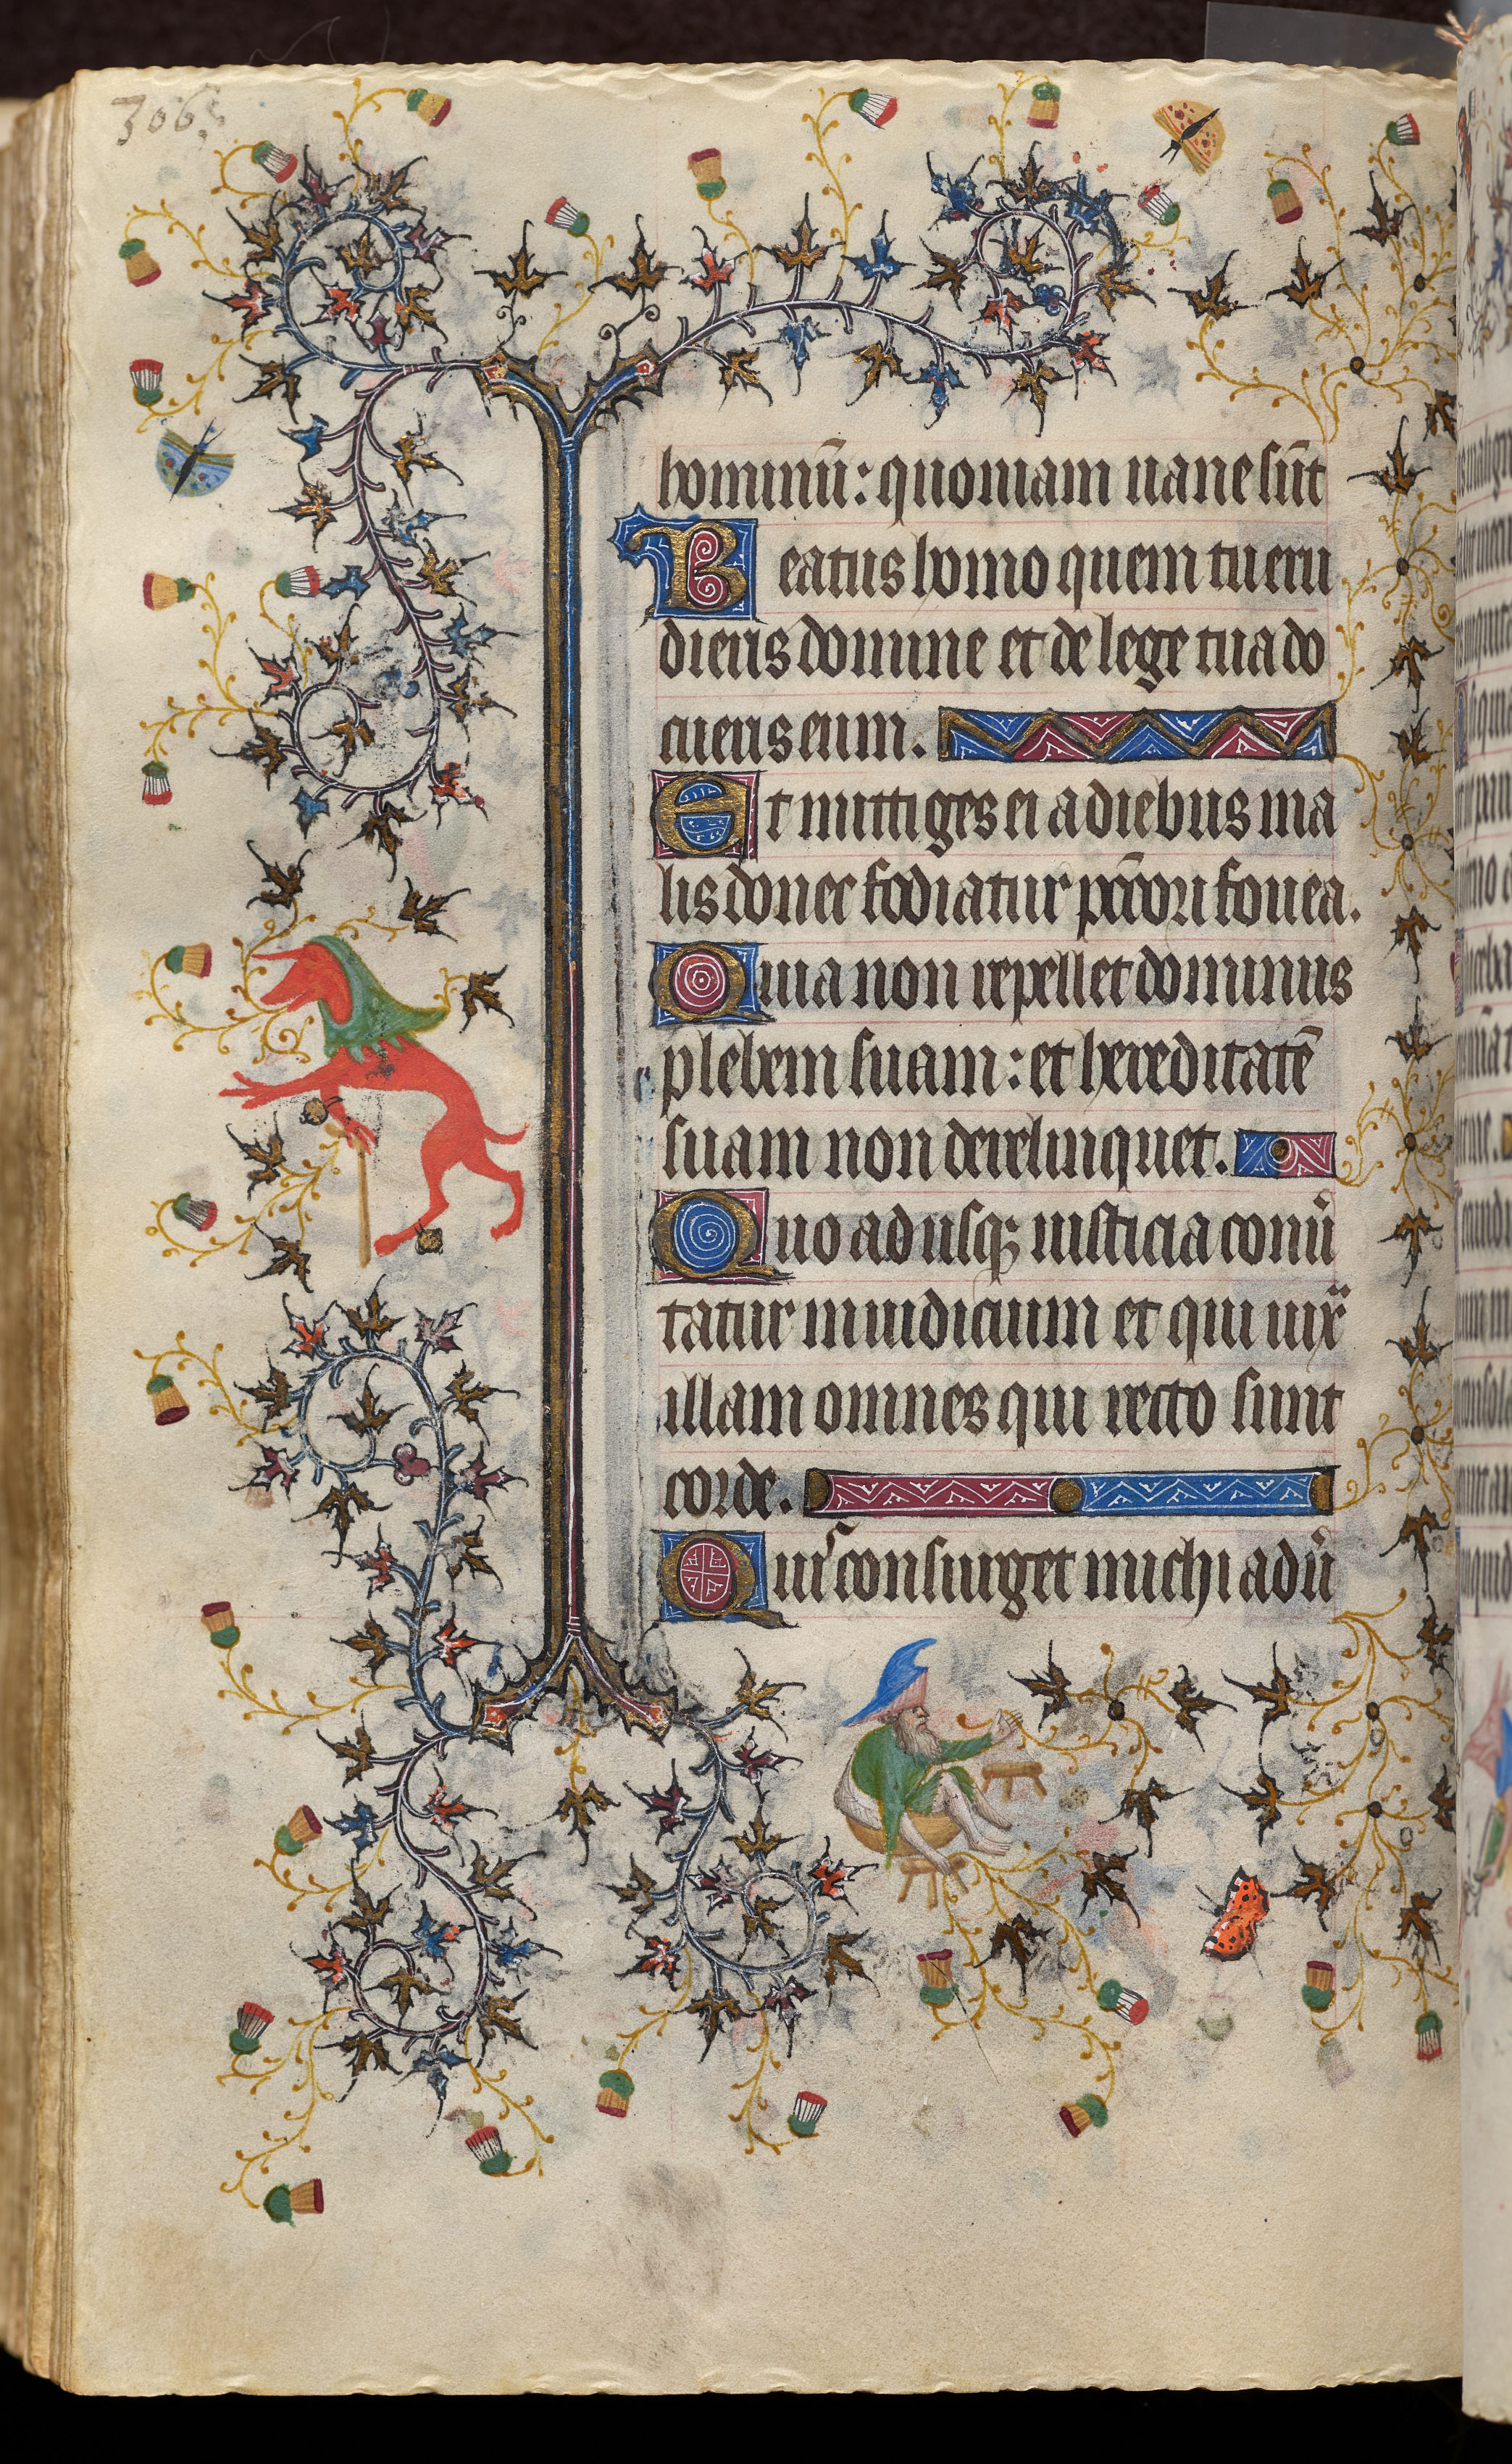 306
hominū: quoniam uane sūt
Beatus homo quem tu eru
dieris domine et de lege tua do
cueris eum.
Et mittiges ei a diebus ma
lis donec fodiatur pctōri fouea.
Quia non repellet dominus
plebem suam: et hereditatē
suam non derelinquet.
Quo adusq; iusticia conũ
tatur in iudicium et qui iux̃
illam omnes qui recto sunt
corde.
Quis consurget michi adũ